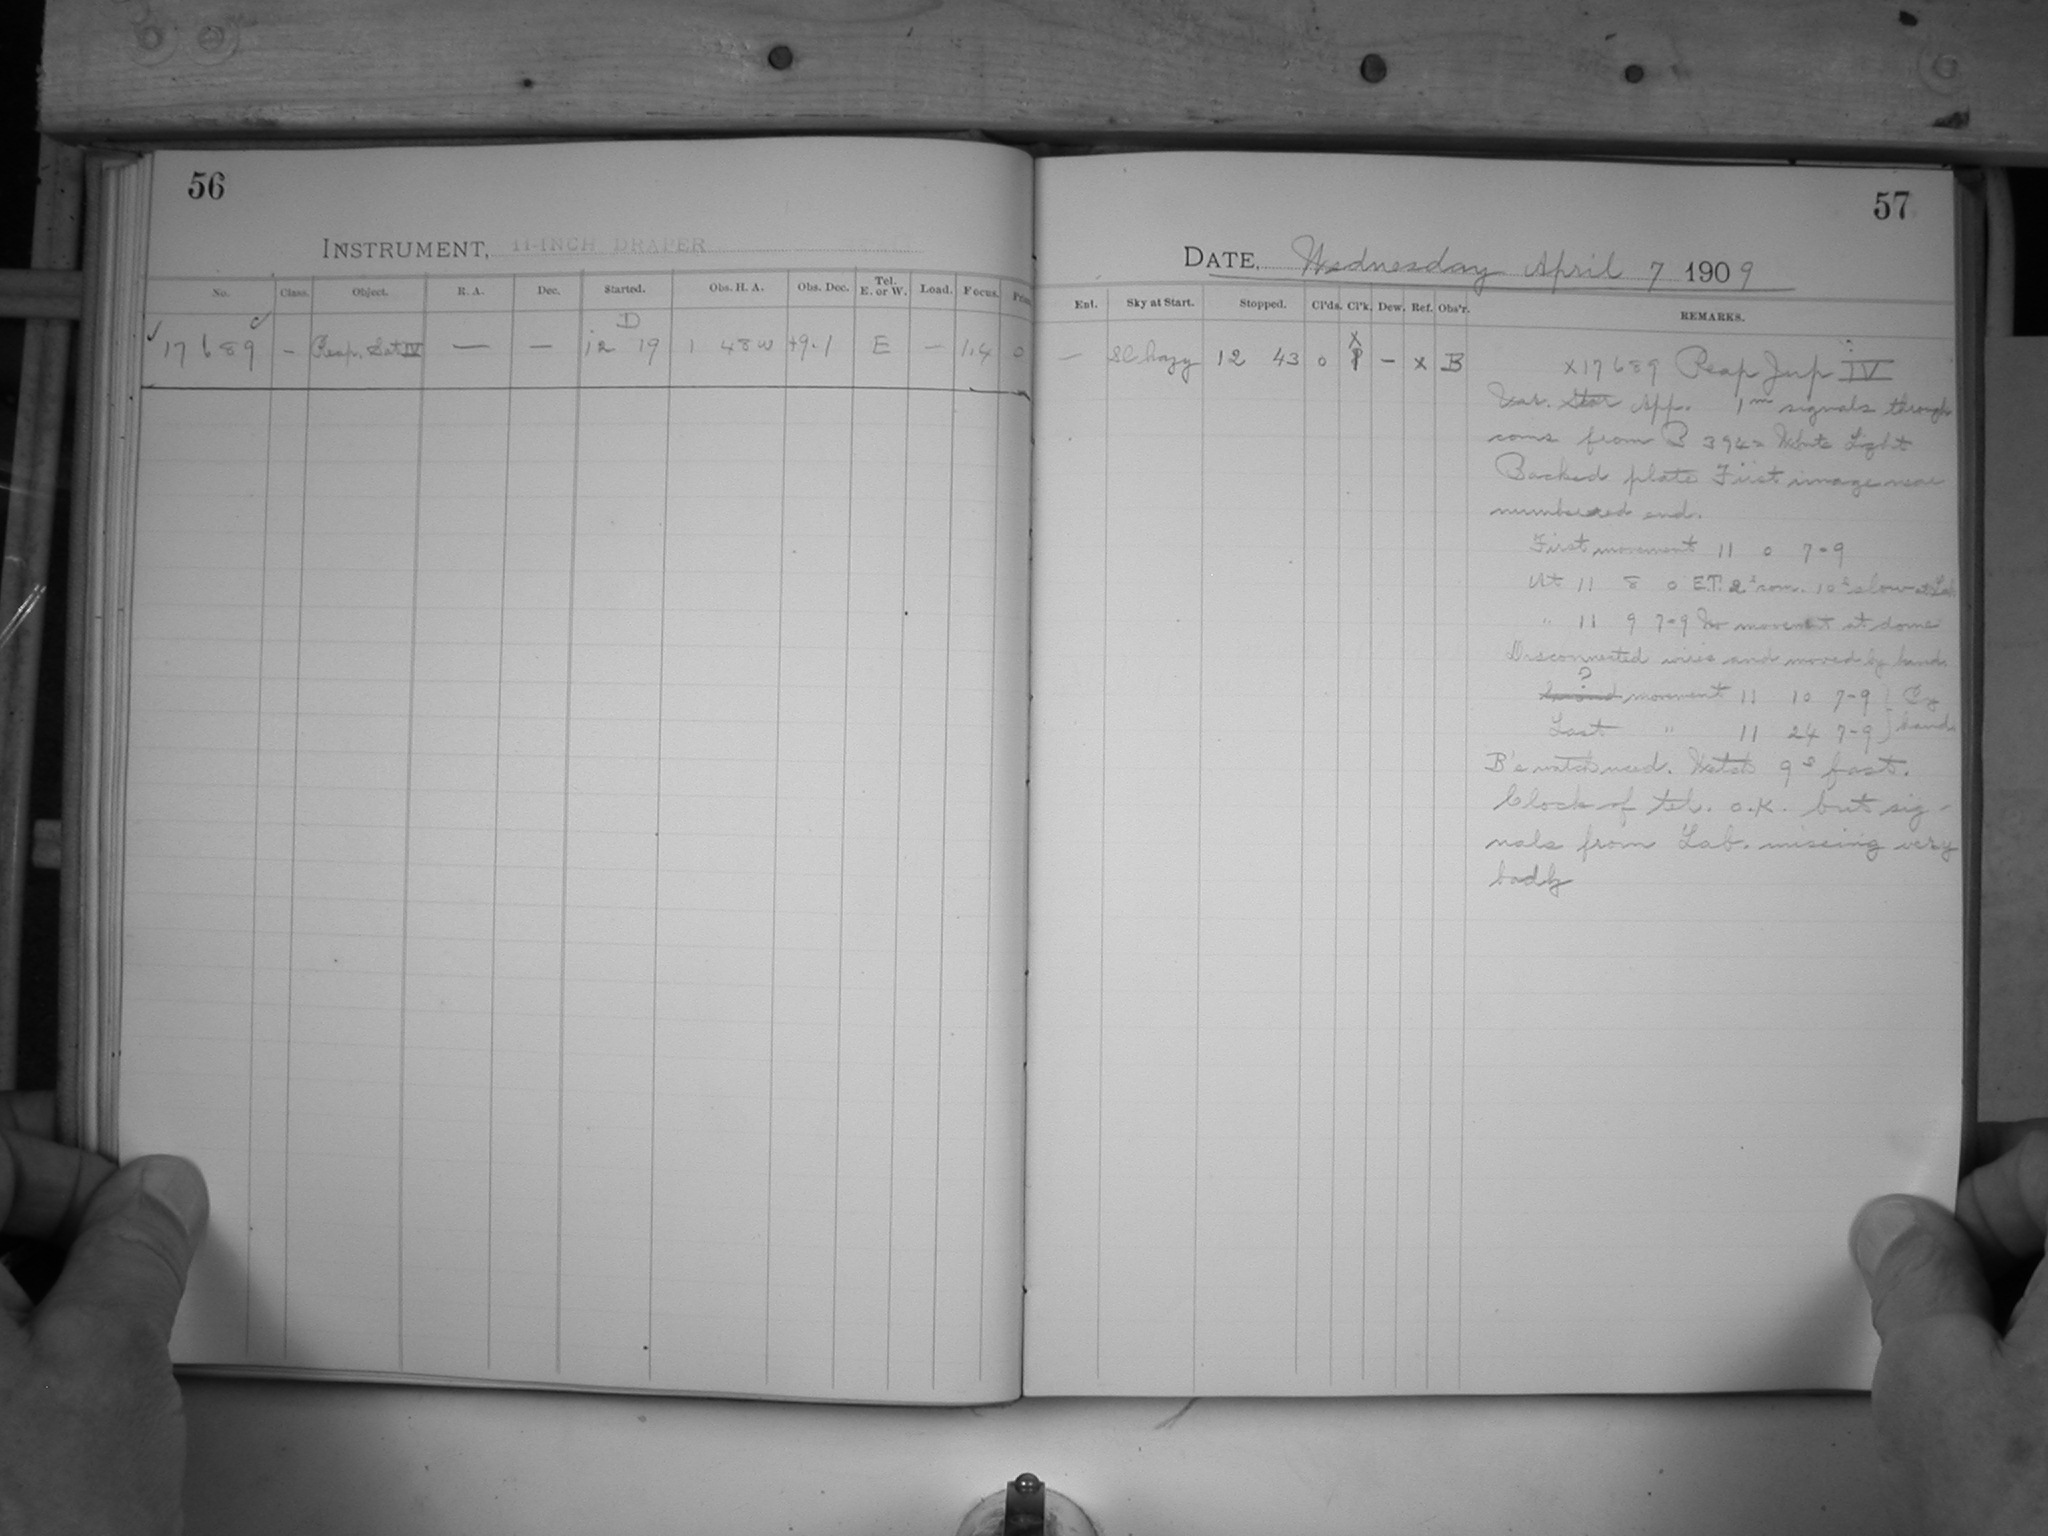 56
INSTRUMENT, 11-INCH DRAPER
No. Class. Object. R. A. Dec. Started. Obs. H. A. Obs. Dec. Tel. E. or W. Load. Focus.
c
D
✓ 17689 – Reap. Sat IV — — 12 19 1 48 w +9.1 E — 1.4 0
57
DATE, Wednesday April 7 1909
Ent. Sky at Start. Stopped. Cl'ds. Cl'k. Dew. Ref. Obs'r. REMARKS.
X
— Sl hazy 12 43 0 P – x B
x17689 Reap Jup IV
Var. Star App. 1m signals through
coms from B 394 White Light
Backed plate First image near
numbered end.
First movement 11 0 7-9
At 11 8 0 E.T. 2s com. 10s slow at Lab
" 11 9 7-9 No movement at dome
Disconnected wires and moved by hand
?
Second movement 11 10 7-9 } By
Last " 11 24 7-9 } hand
B's watch used. Watch 9s fast.
Clock of tel. o.K. but sig-
nals from Lab. missing very
badly